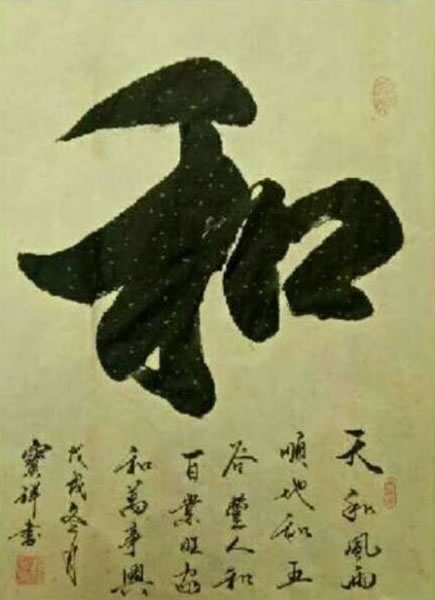 和
天和風雨
順地和五
谷豐人和
百業旺家
和萬事興
戊戌冬月
寶祥書